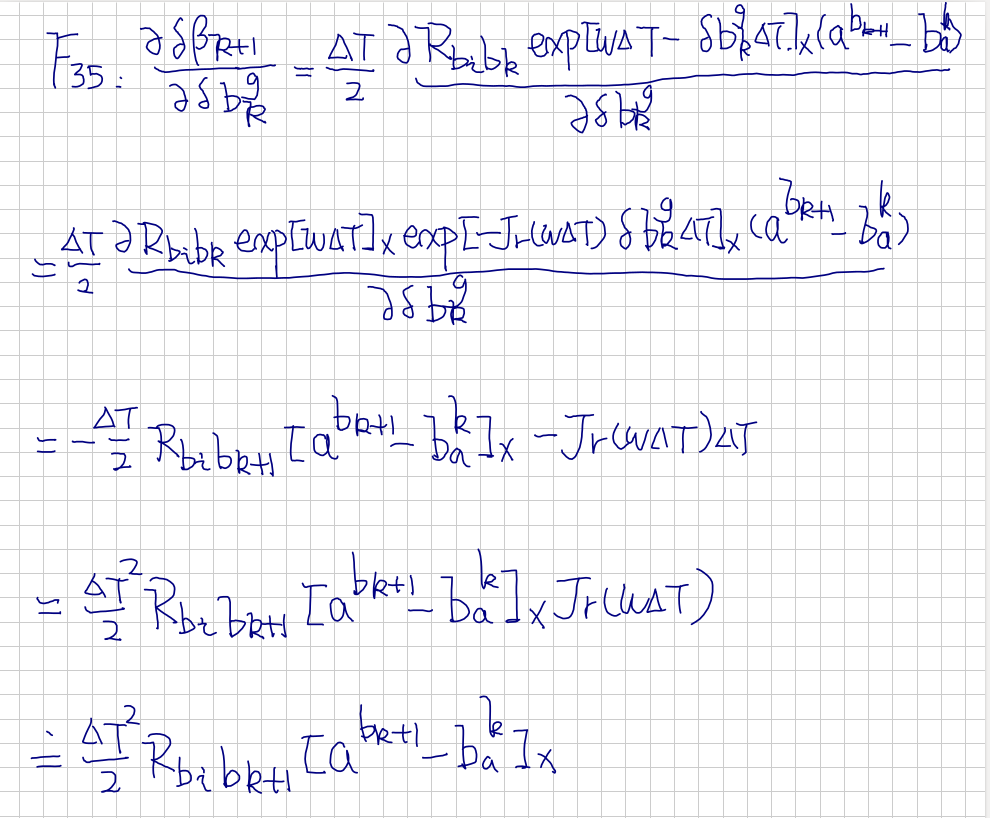 F₃₅: ∂δβ_{k+1} / ∂δb_k^g = ΔT/2 ∂R_{b_i b_k} exp[wΔT - δb_k^g ΔT]_× (a^{b_{k+1}} - b_a^k) / ∂δb_k^g
= ΔT/2 ∂R_{b_i b_k} exp[wΔT]_× exp[-J_r(wΔT) δb_k^g ΔT]_× (a^{b_{k+1}} - b_a^k) / ∂δb_k^g
= -ΔT/2 R_{b_i b_{k+1}} [a^{b_{k+1}} - b_a^k]_× -J_r(wΔT)ΔT
= ΔT²/2 R_{b_i b_{k+1}} [a^{b_{k+1}} - b_a^k]_× J_r(wΔT)
≐ ΔT²/2 R_{b_i b_{k+1}} [a^{b_{k+1}} - b_a^k]_×